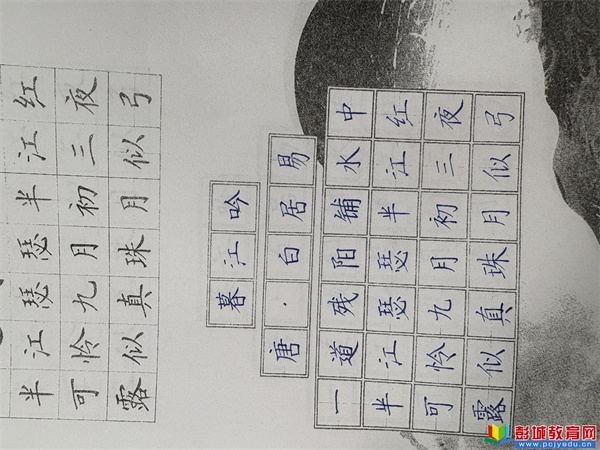 半江瑟瑟半江红
可怜九月初三夜
露似真珠月似弓
暮江吟
唐·白居易
一道残阳铺水中
半江瑟瑟半江红
可怜九月初三夜
露似真珠月似弓
彭城教育网
www.pcjyedu.cn